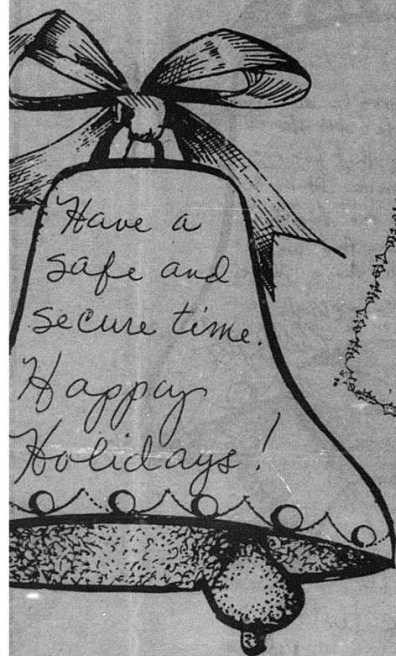 Have a
safe and
secure time.
Happy
Holidays!